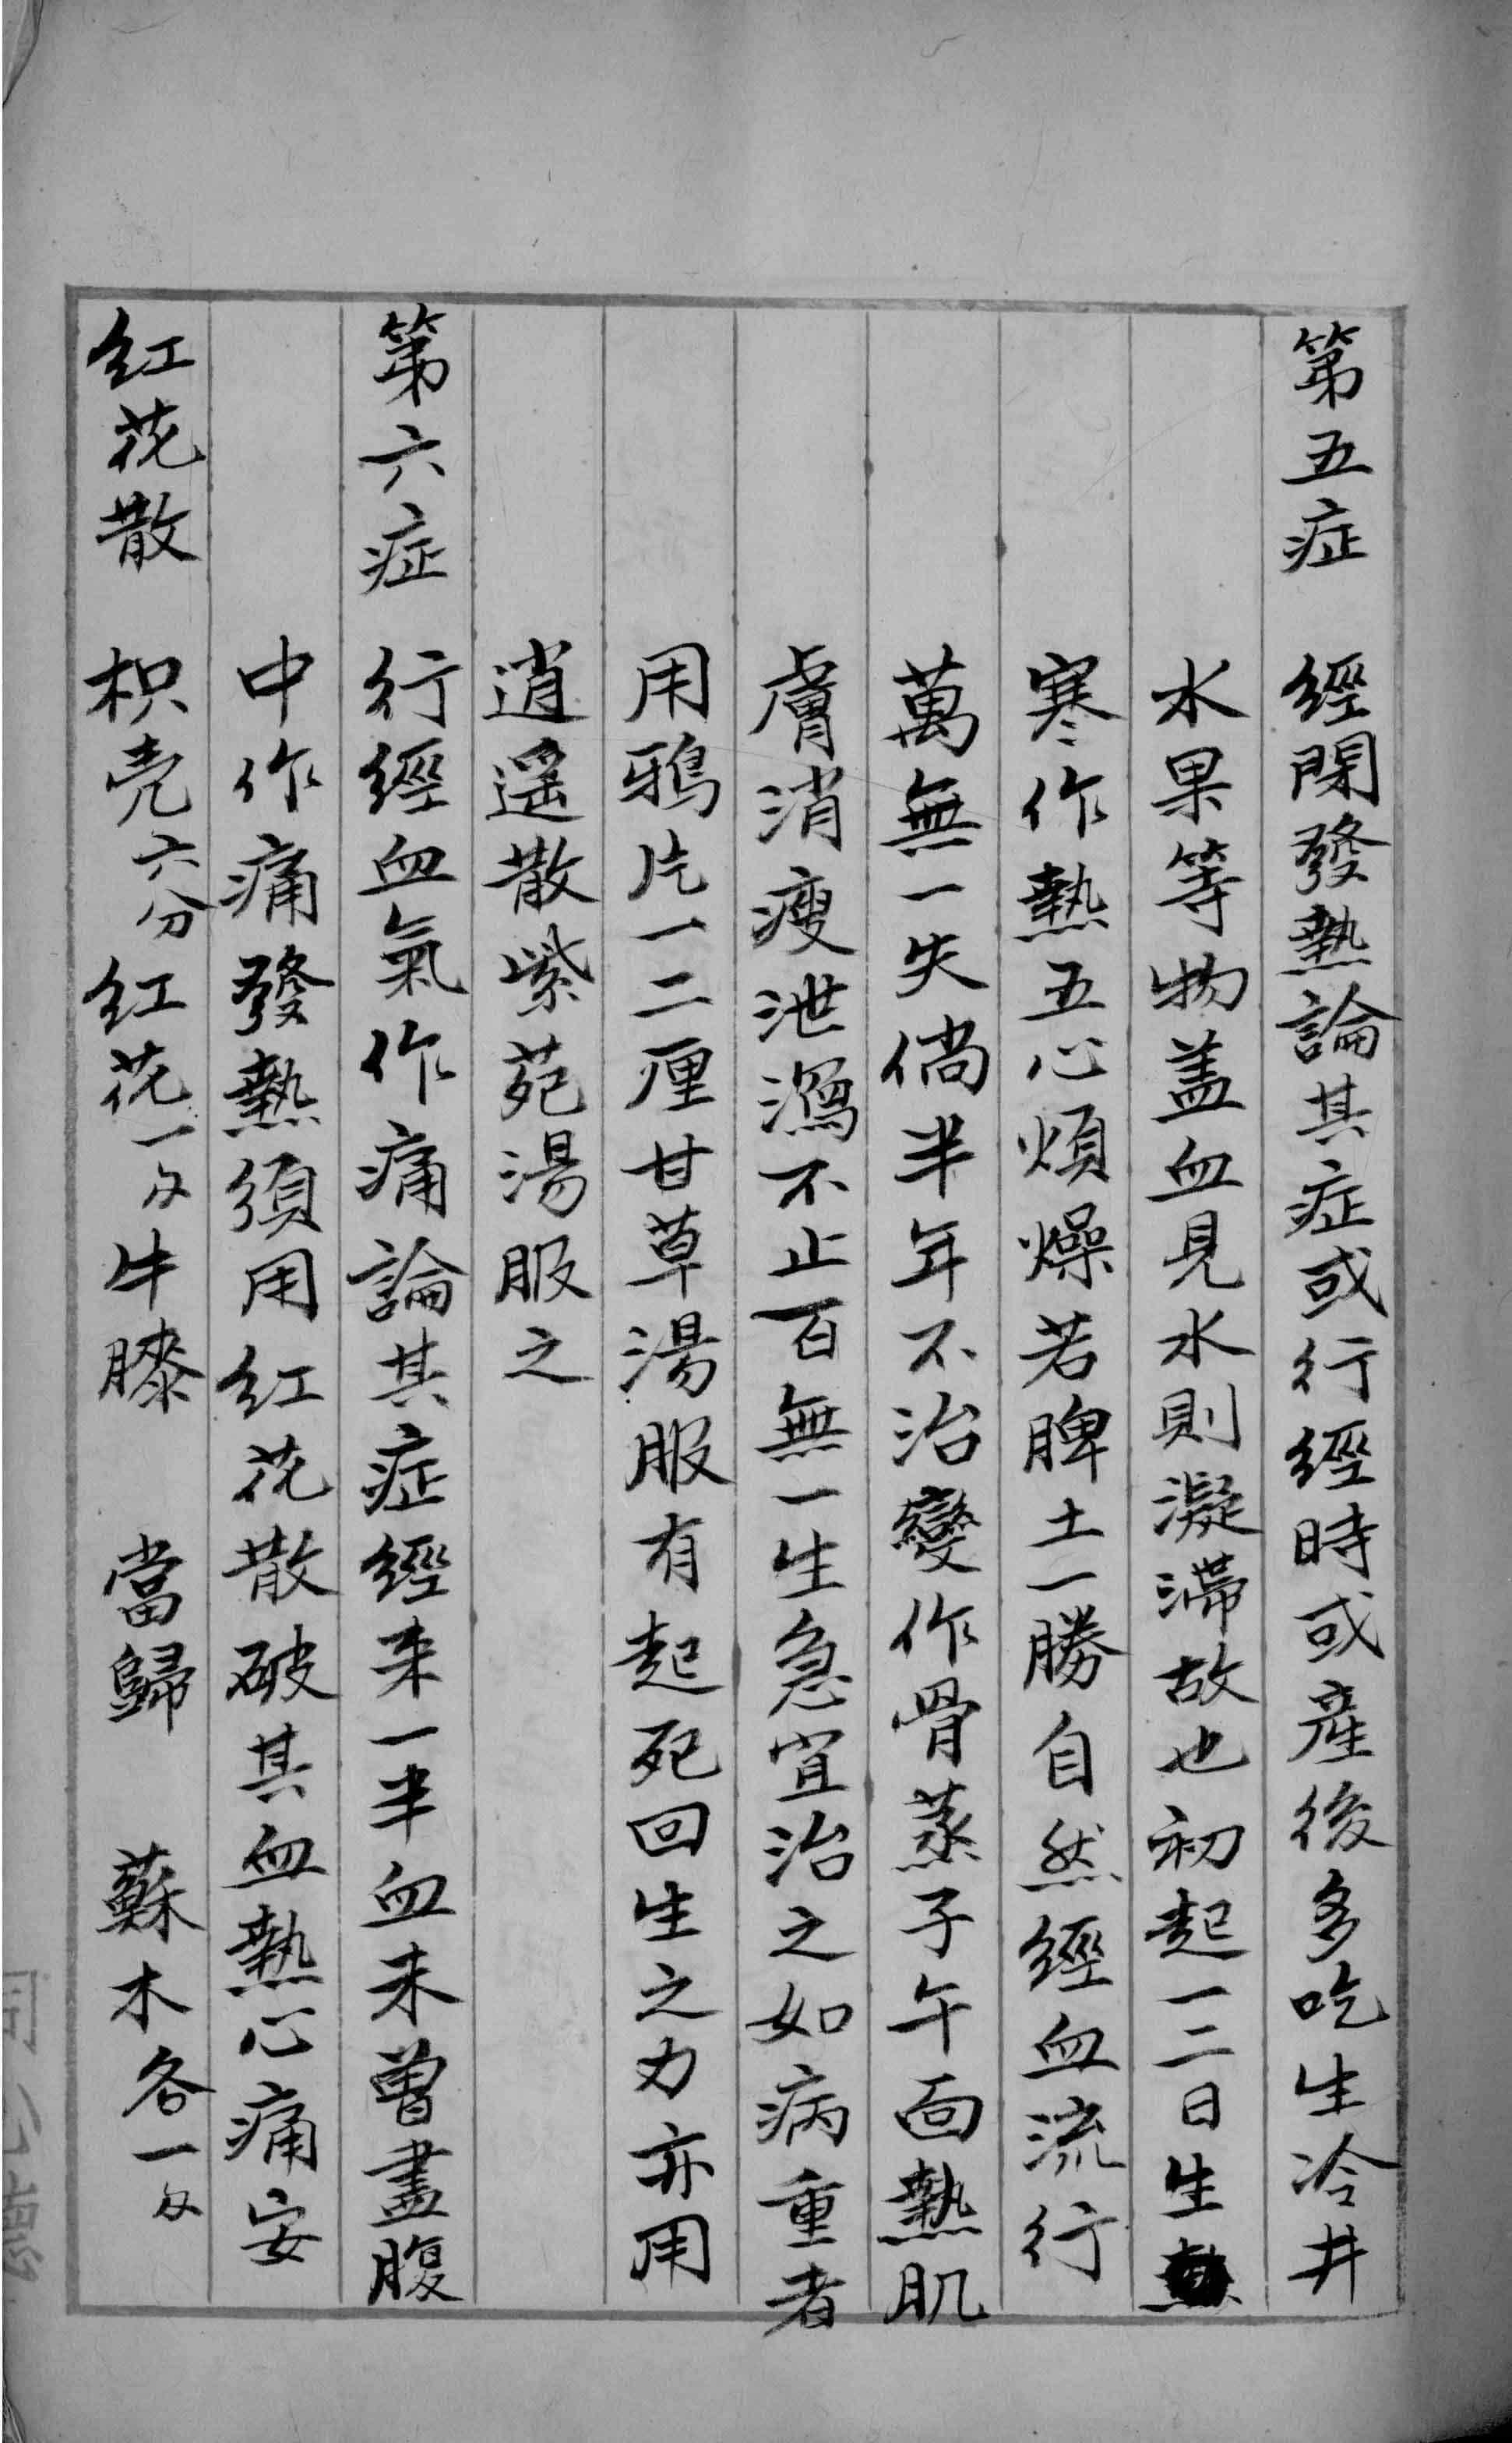 第五症　經閉發熱論其症或行經時或產後多吃生冷井
水果等物盖血見水則凝滯故也初起一二日生
寒作熱五心煩燥若脾土一勝自然經血流行
萬無一失倘半年不治變作骨蒸子午面熱肌
膚消瘦泄瀉不止百無一生急宜治之如病重者
用鴉片一二厘甘草湯服有起死回生之力亦用
逍遥散紫菀湯服之
第六症　行經血氣作痛論其症經来一半血未曾盡腹
中作痛發熱須用紅花散破其血熱心痛安
紅花散　枳壳六分　紅花一錢　牛膝　當歸　蘇木各一錢